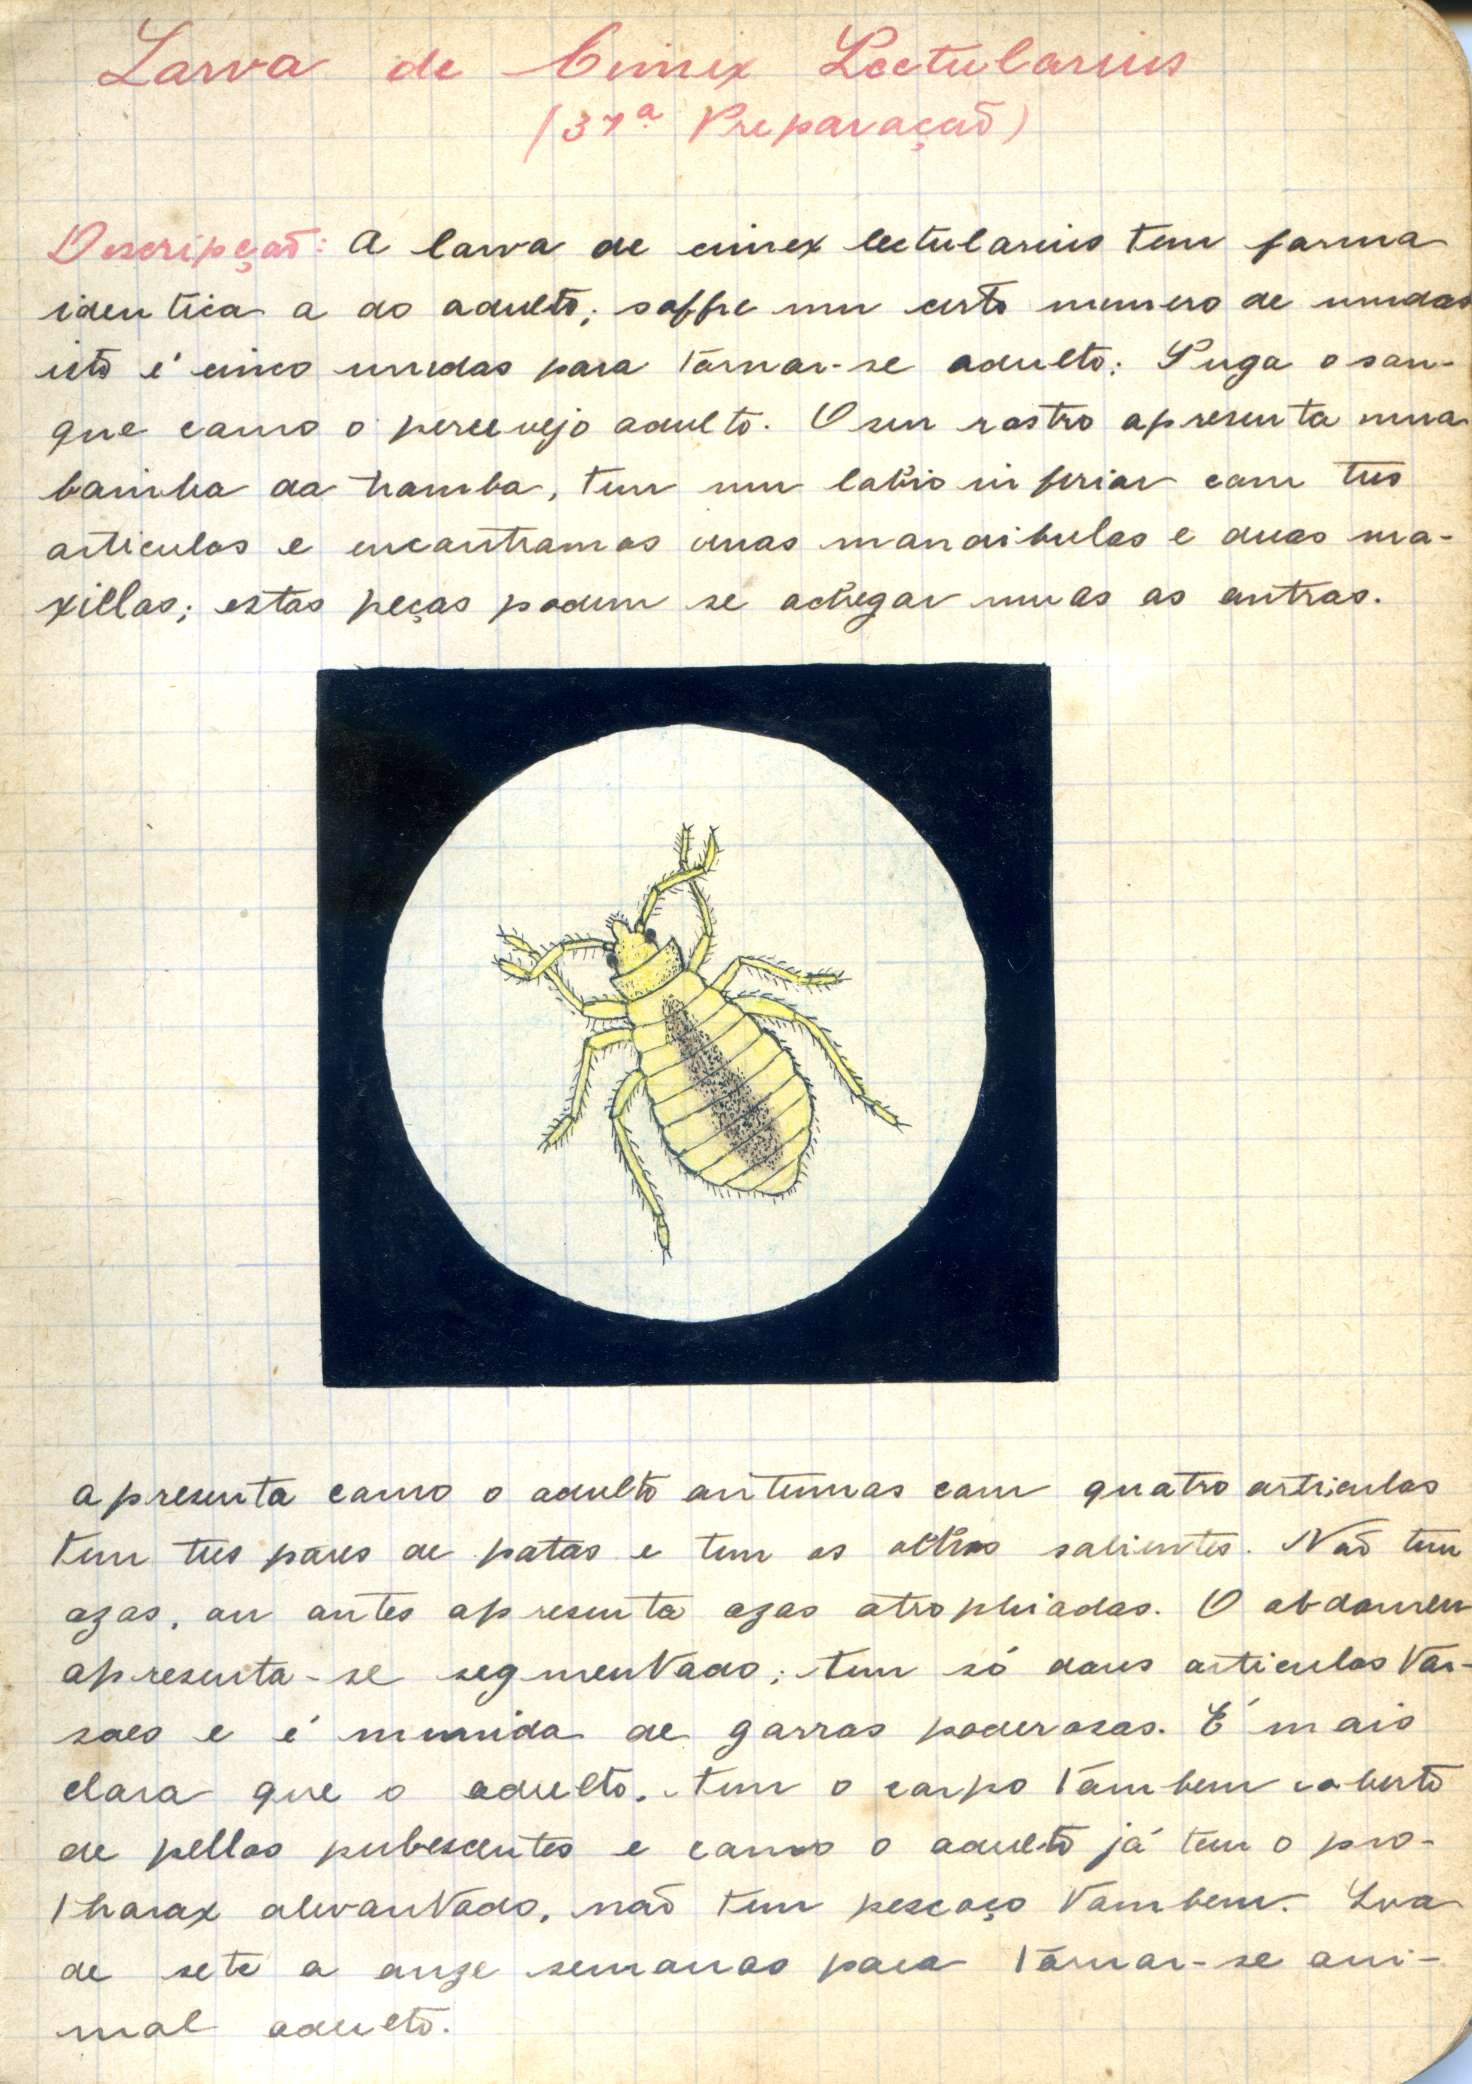 Larva de Cimex Lectularius
(37ª Preparação)
Descripção: A larva de cimex lectularius tem forma
identica a do adulto; soffre um certo numero de mudas
isto é cinco mudas para tornar-se adulto. Suga o san-
gue como o percevejo adulto. O seu rostro apresenta uma
bainha da tromba, tem um labio inferior com tres
articulos e encontramos duas mandibulas e duas ma-
xillas; estas peças podem se achegar umas as outras.
apresenta como o adulto antennas com quatro articulos
tem tres pares de patas e tem os olhos salientes. Não tem
azas, ou antes apresenta azas atrophiadas. O abdomen
apresenta-se segmentado; tem só dous articulos tar-
saes e é munida de garras poderosas. É mais
clara que o adulto. tem o corpo tambem coberto
de pellos pubescentes e como o adulto já tem o pro-
thorax alevantado, não tem pescoço tambem. Leva
de sete a onze semanas para tornar-se ani-
mal adulto.